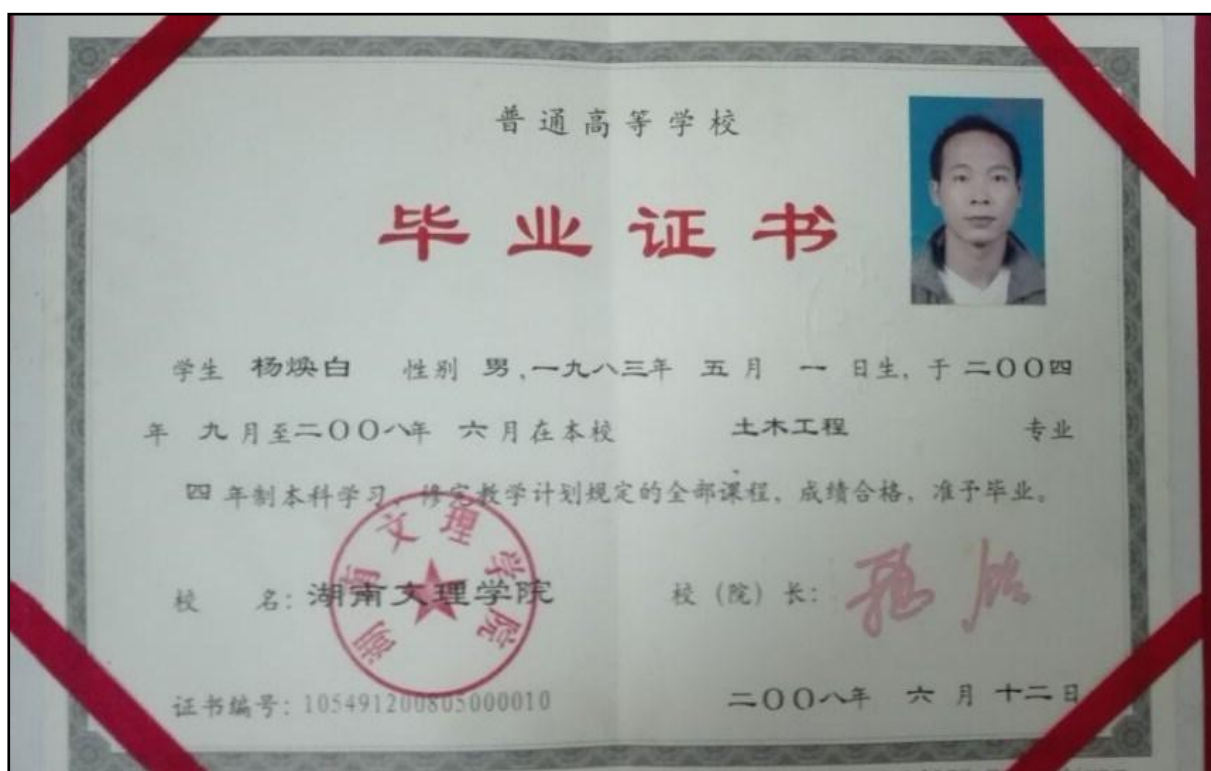 普通高等学校
毕业证书
学生 杨焕白 性别 男,一九八三年 五月 一 日生, 于 二〇〇四
年 九月至二〇〇八年 六月在本校 土木工程 专业
四 年制本科学习, 修完教学计划规定的全部课程, 成绩合格, 准予毕业。
湖南文理学院
校 名: 湖南文理学院 校 (院) 长:
证书编号: 105491200805000010 二〇〇八年 六 月 十二日